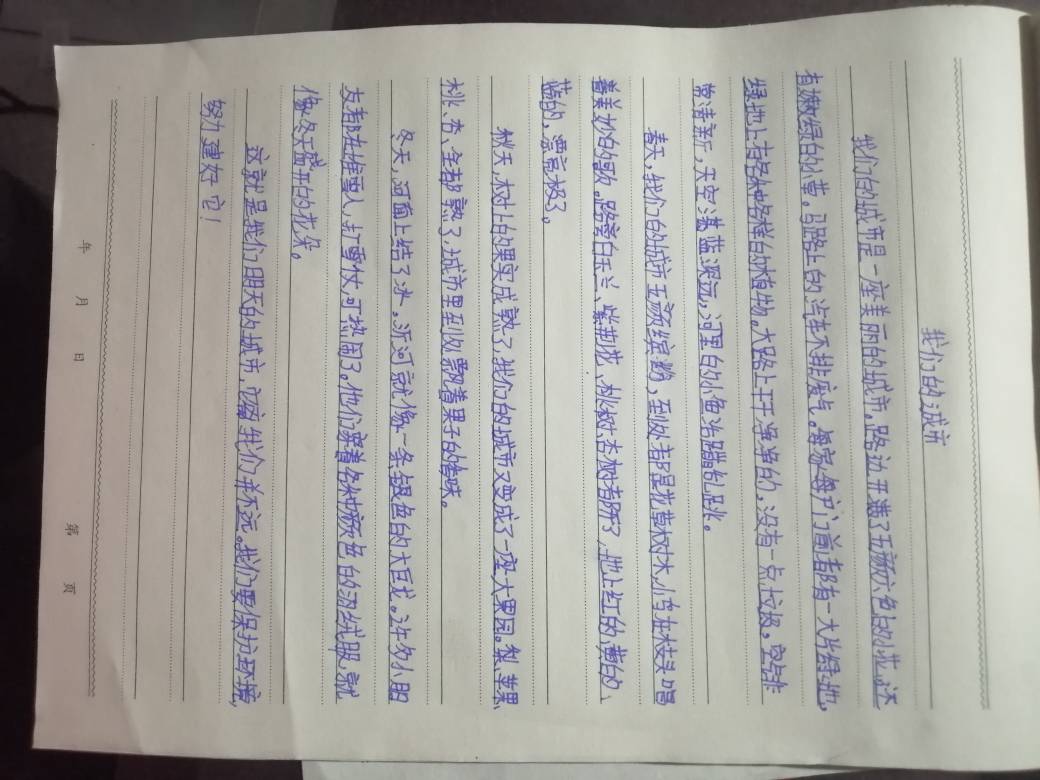 我们的城市
我们的城市是一座美丽的城市。路边开满了五颜六色的小花,还
有嫩绿的小草。马路上的汽车不排废气。每家每户门前都有一大片绿地,
绿地上有各种各样的植物。大路上干干净净的,没有一点垃圾。空气非
常清新,天空湛蓝深远,河里的小鱼活蹦乱跳。
春天,我们的城市五颜缤纷,到处都是花草树木,小鸟在枝头唱
着美妙的歌。路旁白玉兰、紫荆花、桃树、杏树都开了,地上红的、黄的、
蓝的,漂亮极了。
秋天,树上的果实成熟了,我们的城市又变成了一座大果园。梨、苹果、
桃、杏、全都熟了,城市里到处飘着果子的香味。
冬天,河面上结了冰,沂河就像一条银色的大巨龙。许多小朋
友有在堆雪人,打雪仗,可热闹了。他们穿着各种颜色的羽绒服,就
像冬天盛开的花朵。
这就是我们明天的城市,它离我们并不远。我们要保护环境,
努力建好它!
年 月 日
第 页